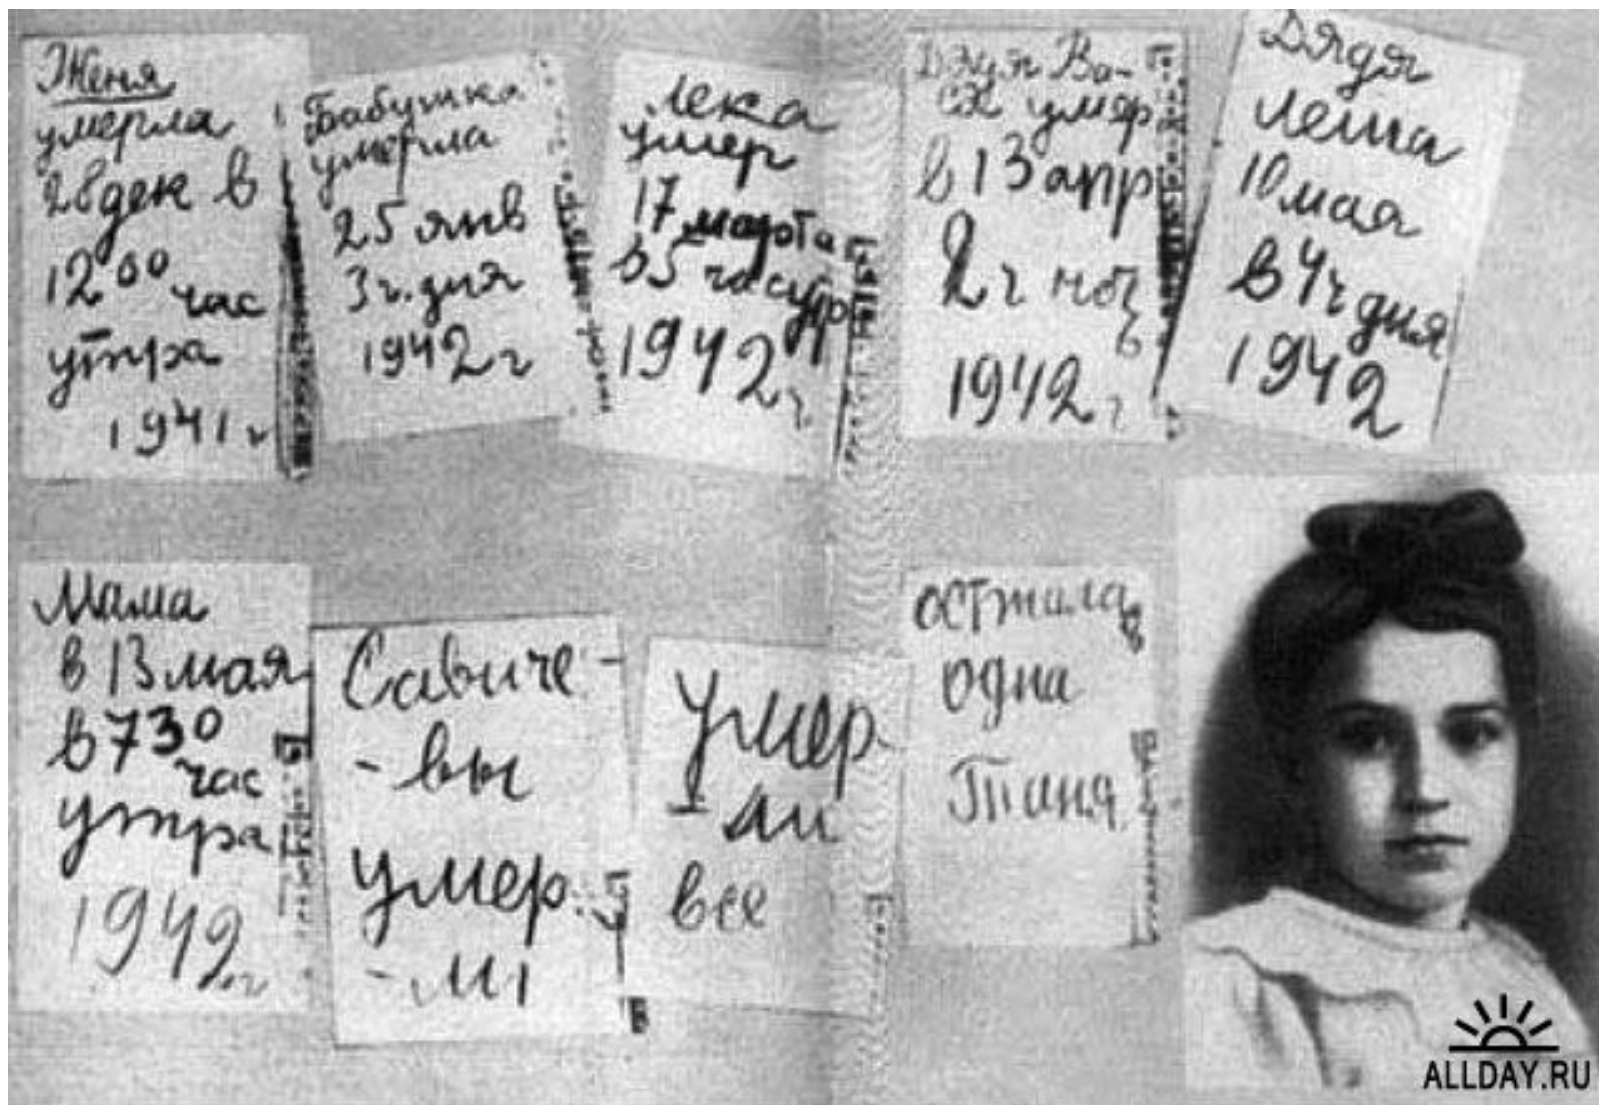 Женя
умерла
28 дек в
12 00 час
утра
1941 г
Бабушка
умерла
25 янв
3 ч. дня
1942 г
Лека
умер
17 марта
в 5 час утр
1942 г
Дядя Ва-
ся умер
в 13 апр
2 ч ноч
ь
1942 г
Дядя
Леша
10 мая
в 4 ч дня
1942
Мама
в 13 мая
в 7 30
час
утра
1942 г
Савиче-
-вы
умер
-ли
Умер
-ли
все
осталась
одна
Таня
ALLDAY.RU